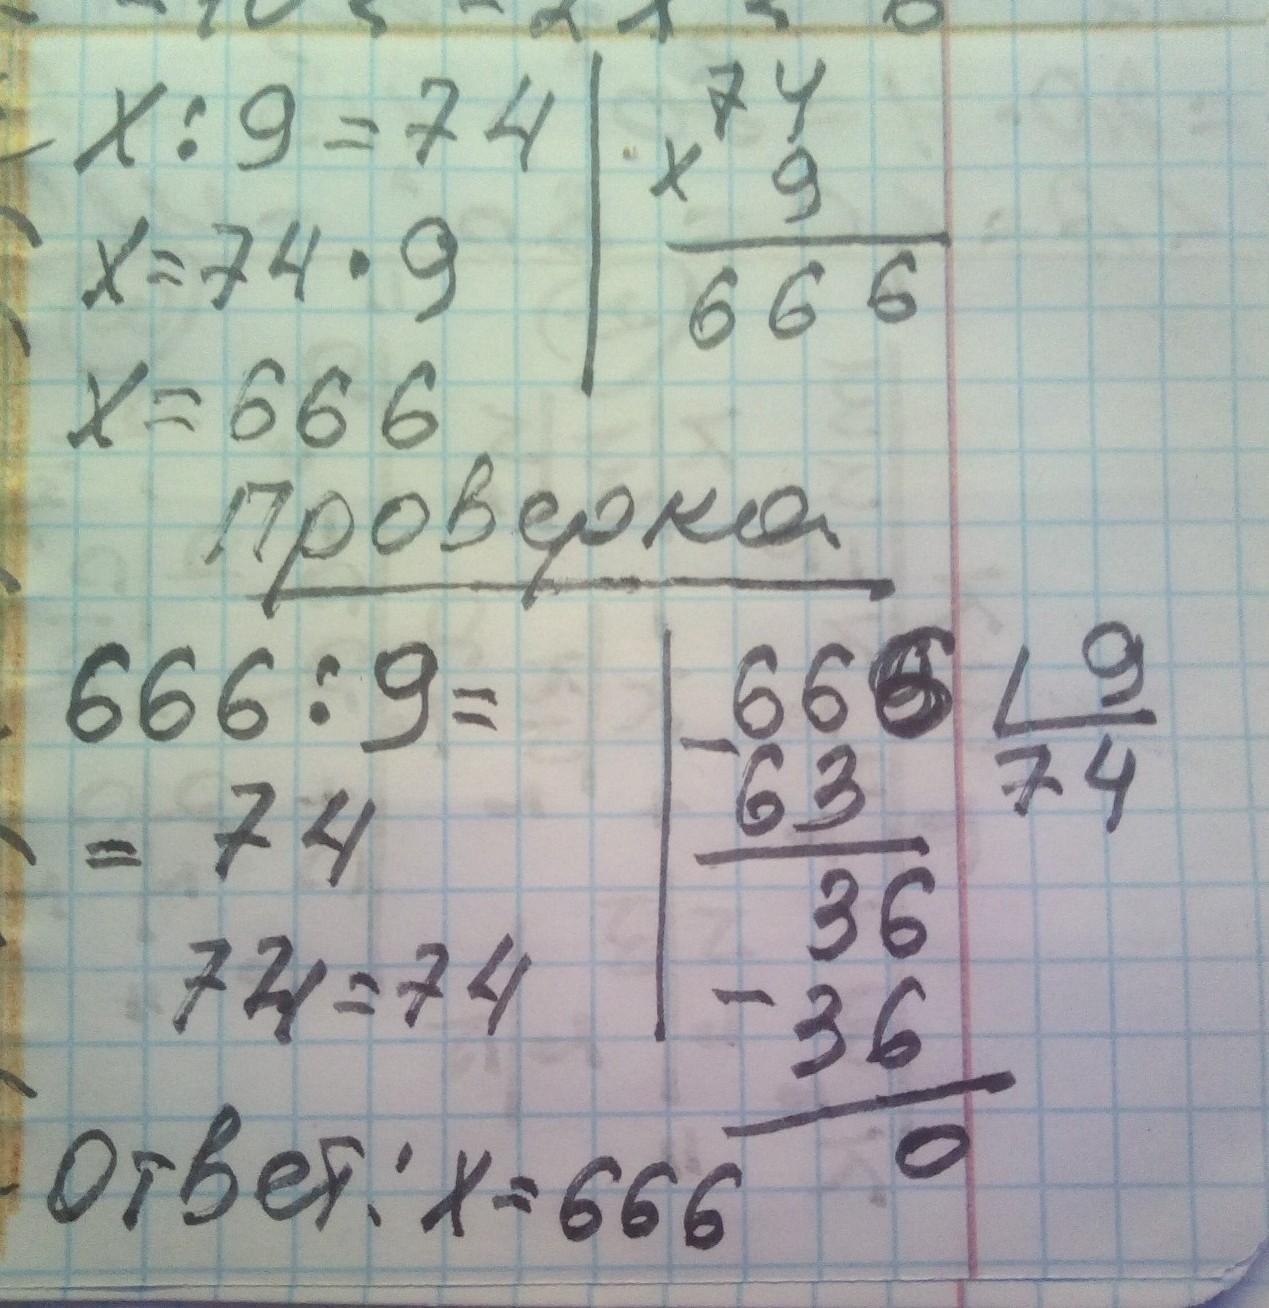 x:9=74
x=74·9
x=666
74
x 9
666
Проверка
666:9=
= 74
74=74
666 9
-63 74
36
-36
0
Ответ: x=666